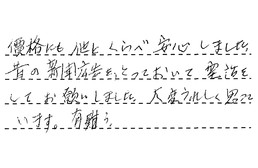 価格にも他にくらべ安心しました
昔の新聞広告をとっておいて電話を
してお願いしました 大変うれしく思って
います。有難う